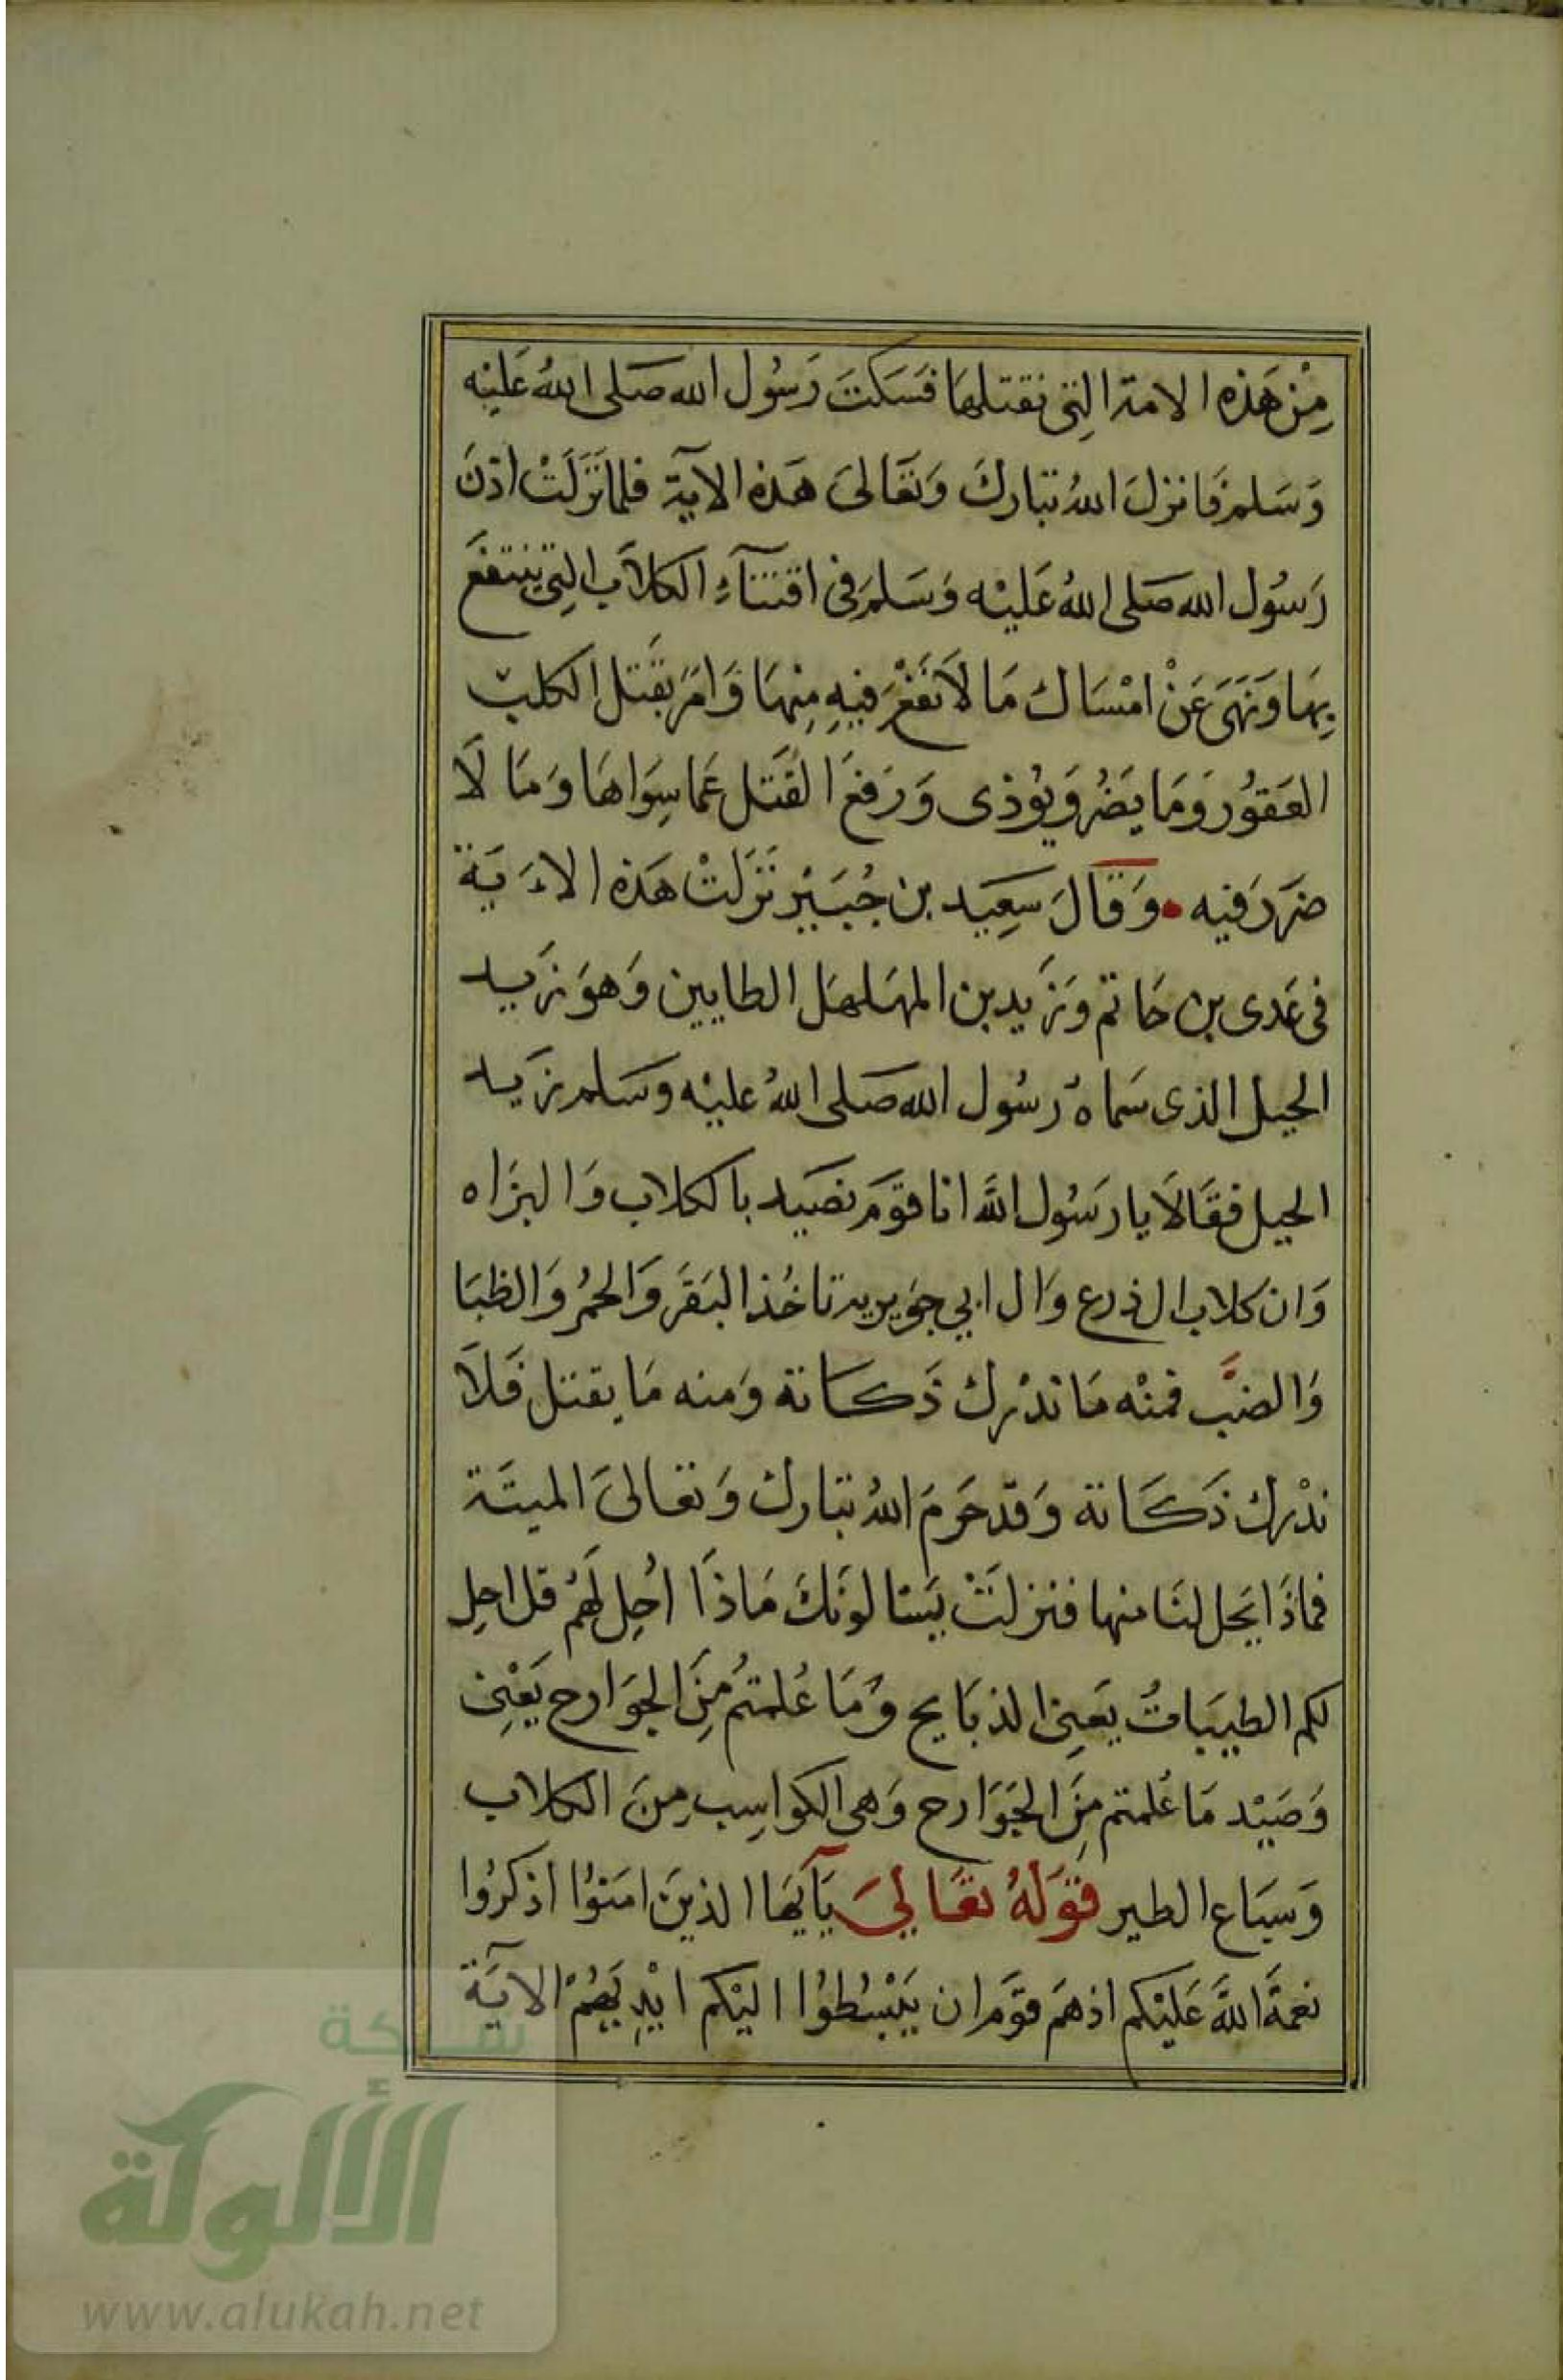 مِنْ هَذِه الامة الِتى نقتلهَا فَسَكتَ رَسُول الله صَلى اللهُ عَليْه
وَسَلم فَانزلَ اللهُ تبَاركَ وَتعَالىَ هَذه الآيَة فلما نَزَلَتْ اذنَ
رَسُول الله صَلى اللهُ عَليْه وَسَلمَ فى اقتنآءِ الكلاَب الِتى ينتفعَ
بِهَا وَنَهَى عَنْ امْسَاك مَا لاَ نَفعْ فيهِ مِنهَا وَامَر بقَتل الكلبْ
العَقوُر وَمَا يَضُر وَيوُذى وَرَفعَ القَتل عَما سِوَاهَا وَمَا لَا
ضَرَر فيه • وَقَالَ سَعِيَد بن جُبَيْر نَزَلتْ هَذه الاءَيَة
فى عَدى بن حَاتم وَزَيد بن المهَلهَل الطايين وَهوَ زَيد
الحيل الذى سَماهُ رسُول الله صَلى اللهُ عليْه وسَلم زَيد
الحيل فقَالاَ يا رسَوُل اللَّه انا قوَم نصَيد بالكلاب وَالبزَاه
وَان كلاب ال ذرع وَال ابي جوَيرية تاخُذ البَقَر وَالحمُر وَالظبَا
وَالضبَّ فمنْه مَا ندْرك ذَكاتة وَمنه مَا يقتل فَلاَ
ندْرك ذَكَاتة وَقد حَرمَ اللهُ تبَارك وَتعَالىَ الميتَة
فماذَا يَحل لنَا منها فنزلتْ يَسْالونَكَ مَاذَا اُحِل لَهُم قل احِل
لكم الطيبَاتُ يَعنِى الذبَايح وَمَا عُلمتمُ مِنَ الجوَارح يَعْنِى
وَصَيْد مَا عُلمتم مِنَ الجَوَارح وَهى الكواسِب مِنَ الكلاب
وَسبَاع الطير قوَلهُ تعَالىَ يَآيهَا الذينَ امَنوُا اذكرُوا
نعمَة اللَّه عَليْكم اذ هَم قوَم ان يَبْسُطوُا اليْكم ايْدِيَهُمْ الآيَة
شبكة
الألوكة
www.alukah.net